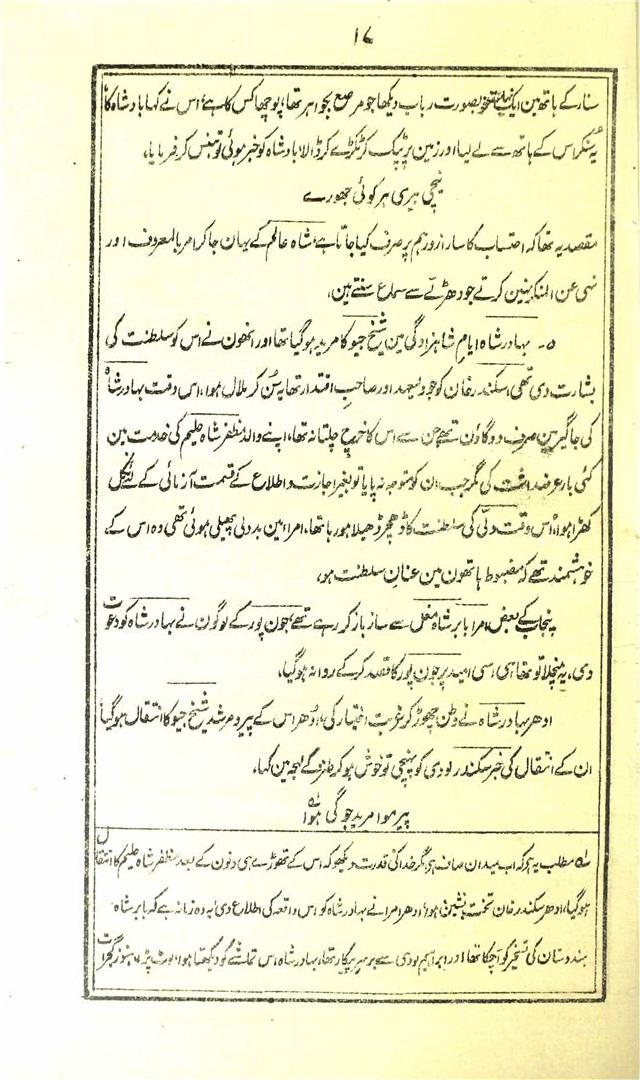 ۱۷
سنار کے ہاتھ مین ایک نہایت خوبصورت رباب دیکھا جو مرصع بجواہر تھا، پوچھا کس کا ہے، اس نے کہا بادشاہ کا
یہ سنکر اس کے ہاتھ سے لے لیا اور زمین پر پٹک کر ٹکڑے کر ڈالا بادشاہ کو خبر ہوئی تو ہنس کر فرمایا،
نیچی بیری ہر کوئی جھورے
مقصد یہ تھا کہ احتساب کا سارا زور ہم پر صرف کیا جاتا ہے، شاہ عالم کے یہان جا کر امر بالمعروف اور
نہی عن المنکر نہین کرتے جو دھڑلے سے سماع سنتے ہین،
۵- بہادر شاہ ایام شاہزادگی مین شیخ جیو کا مرید ہو گیا تھا اور انھون نے اس کو سلطنت کی
بشارت دی تھی، سکندر خان کو جو ولیعہد اور صاحب اقتدار تھا یہ سُن کر ملال ہوا، اس وقت بہادر شاہ
کی جاگیر مین صرف دو گاؤن تھے جن سے اس کا خرچ چلتا نہ تھا، اپنے والد مظفر شاہ حلیم کی خدمت مین
کئی بار عرضداشت کی مگر جب ان کو متوجہ نہ پایا تو بغیر اجازت و اطلاع کے قسمت آزمائی کے لئے نکل
کھڑا ہوا، اس وقت دلّی کی سلطنت کا ڈھچر ڈھیلا ہو رہا تھا، امرا مین بددلی پھیلی ہوئی تھی وہ اس کے
خواہشمند تھے کہ مضبوط ہاتھون مین عنان سلطنت ہو،
پنجاب کے بعض امرا بابر شاہ مغل سے ساز باز کر رہے تھے، جون پور کے لوگون نے بہادر شاہ کو دعوت
دی، یہ منچلا تو تھا ہی، اسی امید پر جون پور کا قصد کر کے روانہ ہو گیا،
ادھر بہادر شاہ نے وطن چھوڑ کر غربت اختیار کی، اُدھر اس کے پیر و مرشد شیخ جیو کا انتقال ہو گیا
ان کے انتقال کی خبر سکندر لودی کو پہنچی تو خوش ہو کر طنز کے لہجہ مین کہا،
پیر موا مرید جوگی ہوا لہ
لہ مطلب یہ ہے کہ اب میدان صاف ہے، مگر خدا کی قدرت دیکھو کہ اس کے تھوڑے ہی دنون کے بعد مظفر شاہ حلیم کا انتقال
ہو گیا، ادھر سکندر خان تخت نشین ہوا، ادھر امرا نے بہادر شاہ کو اس واقعہ کی اطلاع دی، یہ وہ زمانہ ہے کہ بابر شاہ
ہندوستان کی تسخیر کو آچکا تھا اور ابراہیم لودی سے برسر پیکار تھا، بہادر شاہ اس تماشے کو دیکھتا ہوا لوٹ پڑا، ہنوز گجرات